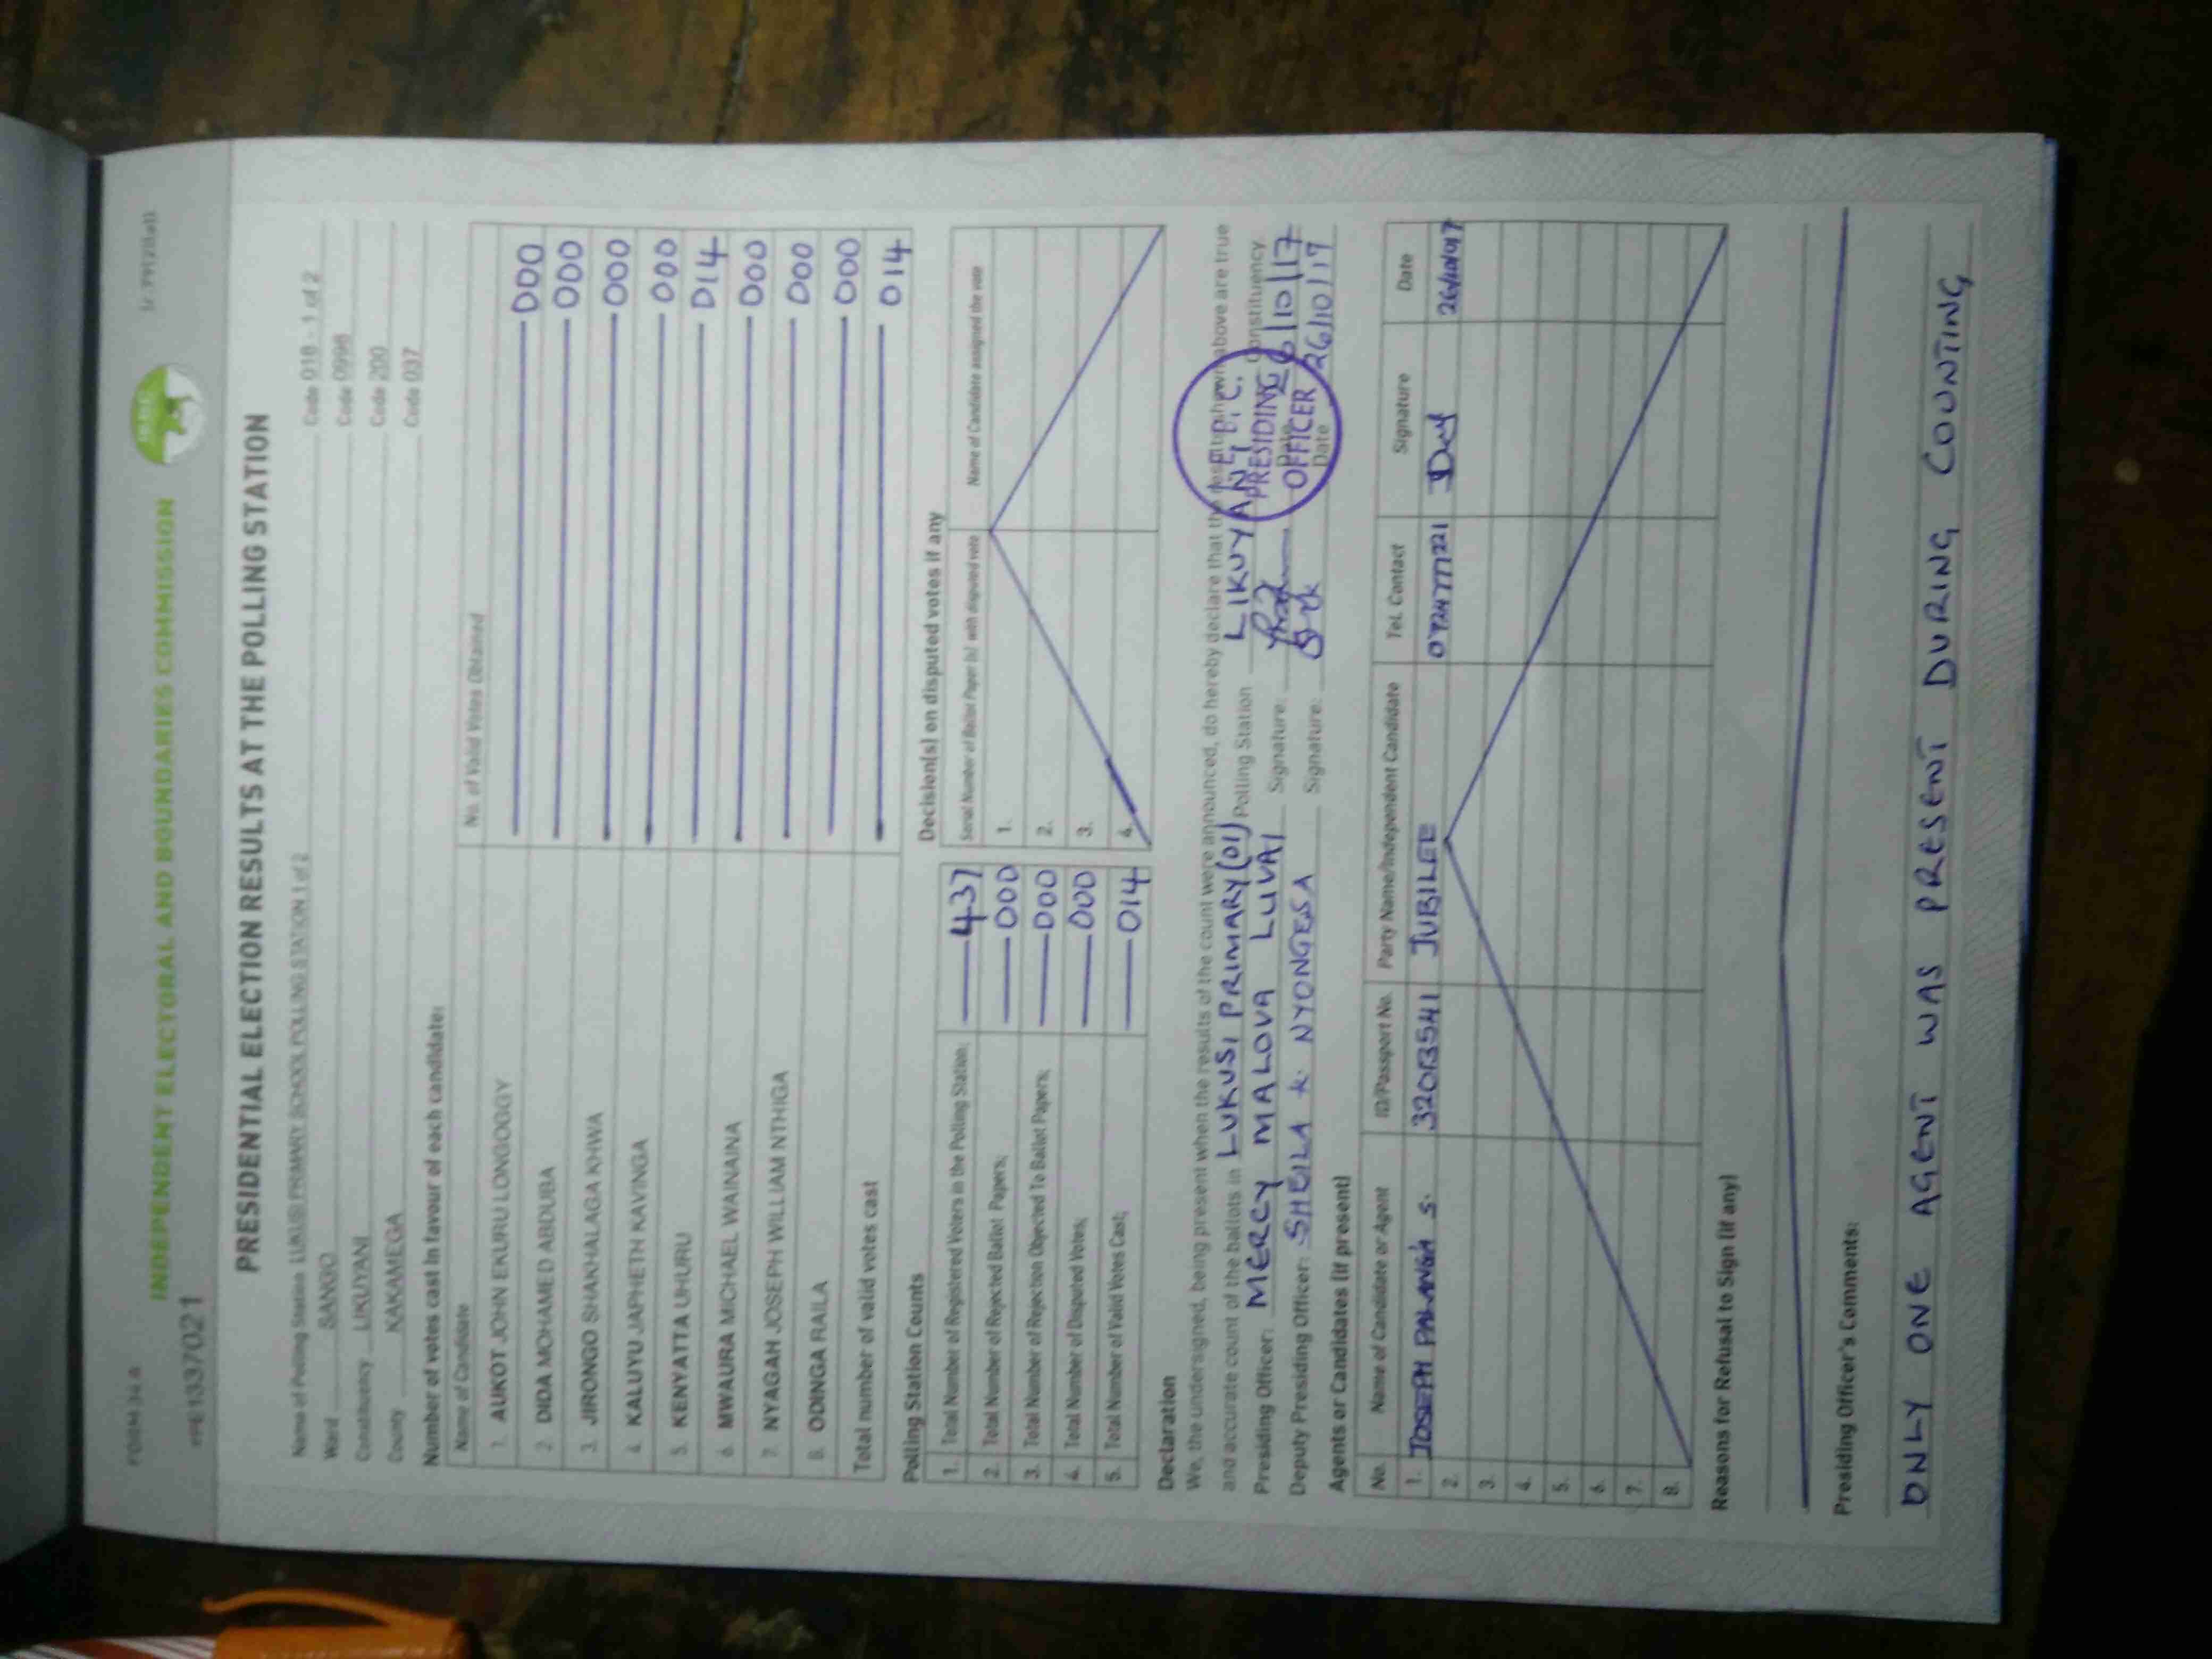 FORM 34 A
INDEPENDENT ELECTORAL AND BOUNDARIES COMMISSION
PRESIDENTIAL ELECTION RESULTS AT THE POLLING STATION
Name of Polling Station LUKUSI PRIMARY SCHOOL POLLING STATION 1 of 2 Code 018 - 1 of 2
Ward SANGO Code 0998
Constituency LIKUYANI Code 200
County KAKAMEGA Code 037
Number of votes cast in favour of each candidate:
Name of Candidate No. of Valid Votes Obtained
1. AUKOT JOHN EKURU LONGOGGY 000
2. DIDA MOHAMED ABDUBA 000
3. JIRONGO SHAKHALAGA KHWA 000
4. KALUYU JAPHETH KAVINGA 000
5. KENYATTA UHURU 014
6. MWAURA MICHAEL WAINAINA 000
7. NYAGAH JOSEPH WILLIAM NTHIGA 000
8. ODINGA RAILA 000
Total number of valid votes cast 014
Polling Station Counts
1. Total Number of Registered Voters in the Polling Station; 437
2. Total Number of Rejected Ballot Papers; 000
3. Total Number of Rejection Objected To Ballot Papers; 000
4. Total Number of Disputed Votes; 000
5. Total Number of Valid Votes Cast; 014
Decision(s) on disputed votes if any
Serial Number of Ballot Paper (s) with disputed vote Name of Candidate assigned the vote
1.
2.
3.
4.
Declaration
We, the undersigned, being present when the results of the count were announced, do hereby declare that the results shown above are true
and accurate count of the ballots in LUKUSI PRIMARY (01) Polling Station LIKUYANI Constituency.
Presiding Officer: MERCY MALOVA LUVAI Signature: Date 26/10/17
Deputy Presiding Officer: SHEILA K. NYONGESA Signature: Date 26/10/17
I.E.B.C.
PRESIDING
OFFICER
Agents or Candidates (if present)
No. Name of Candidate or Agent ID/Passport No. Party Name/Independent Candidate Tel. Contact Signature Date
1. JOSEPH S. JUBILEE
2.
3.
4.
5.
6.
7.
8.
Reasons for Refusal to Sign (if any)
Presiding Officer's Comments:
ONLY ONE AGENT WAS PRESENT DURING COUNTING